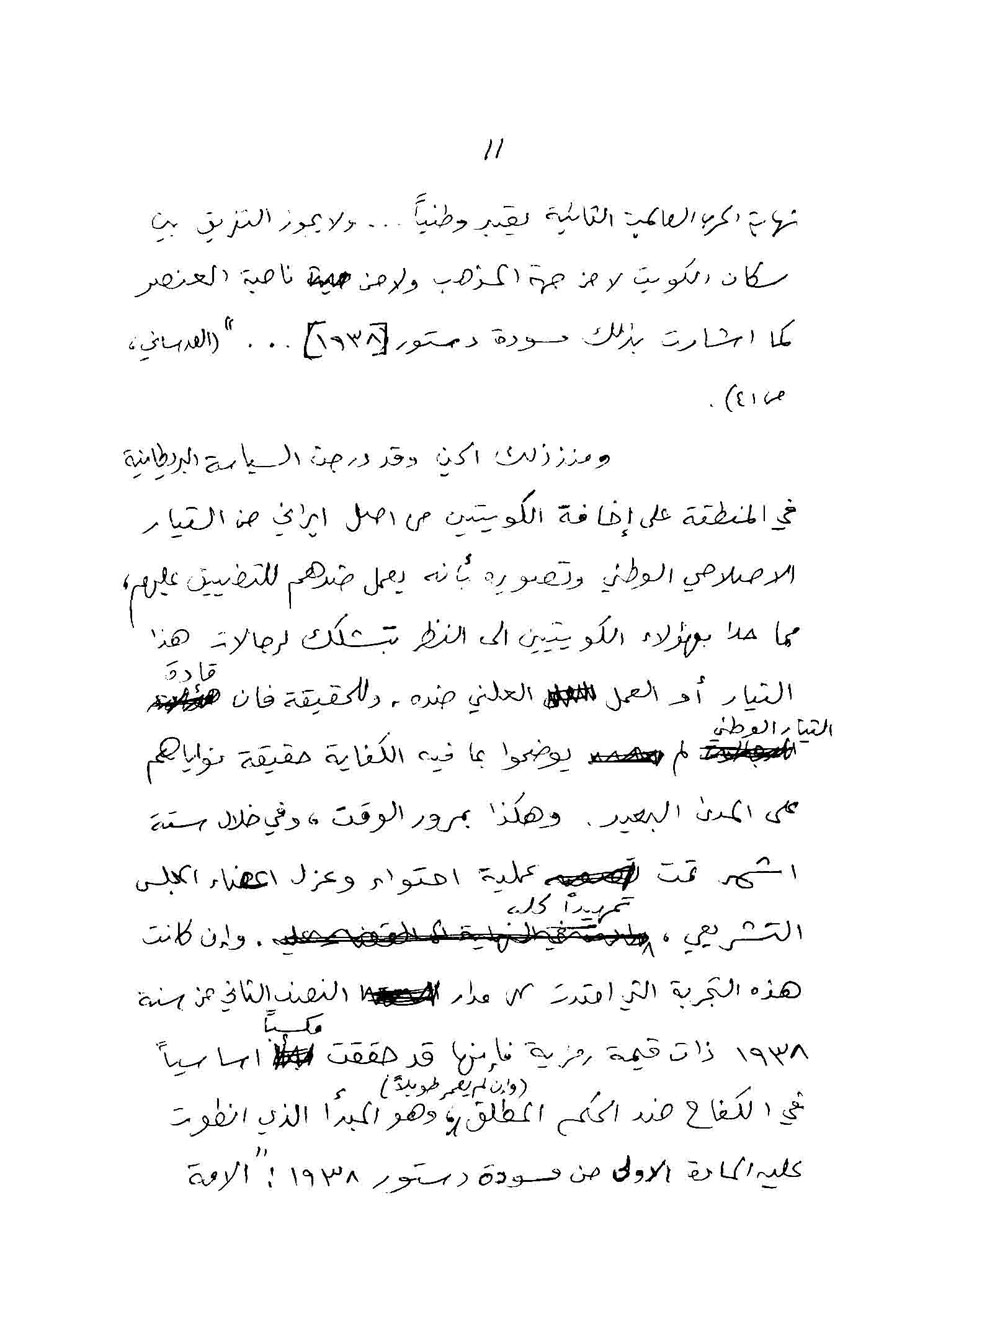 ١١
نهاية الحرب العالمية الثانية يعتبر وطنياً ... ولا يجوز التفريق بين
سكان الكويت لا من جهة المذهب ولا من ناحية العنصر
كما اشارت بذلك مسودة دستور [١٩٣٨] ... " (العدساني،
ص ٤١).
ومنذ ذلك الحين وقد درجت السياسة البريطانية
في المنطقة على إخافة الكويتيين من اصل ايراني من التيار
الاصلاحي الوطني وتصويره بأنه يعمل ضدهم للتضييق عليهم،
مما حدا بهؤلاء الكويتيين الى النظر بتشكك لرجالات هذا
التيار أو العمل العلني ضده. وللحقيقة فان قادة
التيار الوطني لم يوضحوا بما فيه الكفاية حقيقة نواياهم
على المدى البعيد. وهكذا بمرور الوقت، وفي خلال ستة
اشهر تمت عملية احتواء وعزل اعضاء المجلس
التشريعي، تمهيداً لحله. وإن كانت
هذه التجربة التي امتدت على مدار النصف الثاني من سنة
١٩٣٨ ذات قيمة رمزية فإنها قد حققت مكسباً اساسياً
(وإن لم يعمر طويلاً)
في الكفاح ضد الحكم المطلق، وهو المبدأ الذي انطوت
عليه المادة الاولى من مسودة دستور ١٩٣٨: "الامة